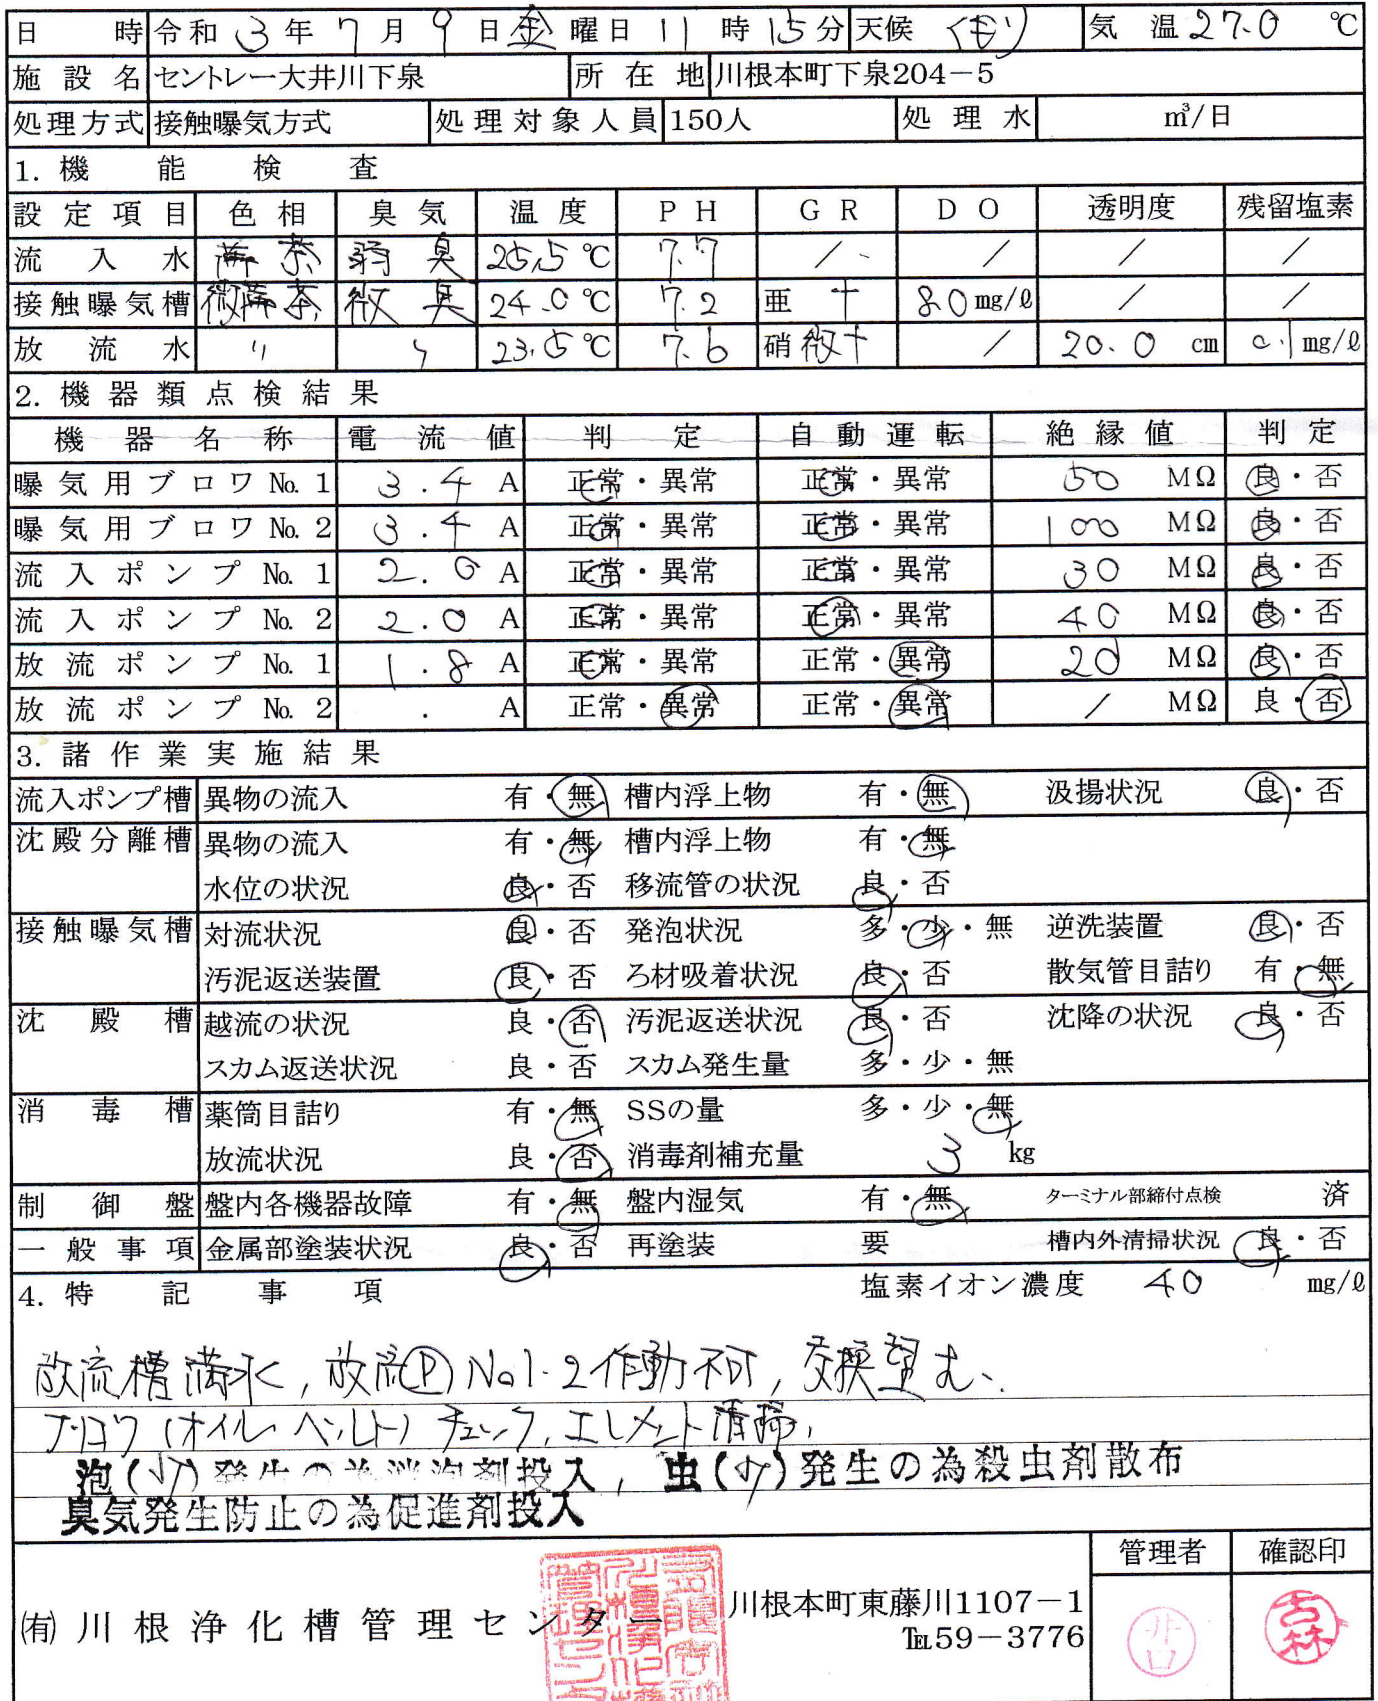 日時 令和3年7月9日金曜日11時15分 天候 くもり 気温27.0℃
施設名 セントレー大井川下泉 所在地 川根本町下泉204-5
処理方式 接触曝気方式 処理対象人員 150人 処理水 ㎥/日
1. 機能検査
設定項目 色相 臭気 温度 PH GR DO 透明度 残留塩素
流入水 茶 弱臭 25.5℃ 7.7 / / / /
接触曝気槽 微茶 微臭 24.0℃ 7.2 亜 + 8.0mg/ℓ / /
放流水 〃 〃 23.5℃ 7.6 硝 微+ / 20.0cm 0.1mg/ℓ
2. 機器類点検結果
機器名称 電流値 判定 自動運転 絶縁値 判定
曝気用ブロワ№1 3.4A 正常・異常 正常・異常 50MΩ 良・否
曝気用ブロワ№2 3.4A 正常・異常 正常・異常 100MΩ 良・否
流入ポンプ№1 2.0A 正常・異常 正常・異常 30MΩ 良・否
流入ポンプ№2 2.0A 正常・異常 正常・異常 40MΩ 良・否
放流ポンプ№1 1.8A 正常・異常 正常・異常 20MΩ 良・否
放流ポンプ№2 .A 正常・異常 正常・異常 /MΩ 良・否
3. 諸作業実施結果
流入ポンプ槽 異物の流入 有・無 槽内浮上物 有・無 汲揚状況 良・否
沈殿分離槽 異物の流入 有・無 槽内浮上物 有・無
水位の状況 良・否 移流管の状況 良・否
接触曝気槽 対流状況 良・否 発泡状況 多・少・無 逆洗装置 良・否
汚泥返送装置 良・否 ろ材吸着状況 良・否 散気管目詰り 有・無
沈殿槽 越流の状況 良・否 汚泥返送状況 良・否 沈降の状況 良・否
スカム返送状況 良・否 スカム発生量 多・少・無
消毒槽 薬筒目詰り 有・無 SSの量 多・少・無
放流状況 良・否 消毒剤補充量 3kg
制御盤 盤内各機器故障 有・無 盤内湿気 有・無 ターミナル部締付点検 済
一般事項 金属部塗装状況 良・否 再塗装 要 槽内外清掃状況 良・否
4. 特記事項 塩素イオン濃度 40 mg/ℓ
放流槽満水,放流Ⓟ No1.2作動不可,交換望む、
ブロワ(オイル ベルト)チェック,エレメント清掃,
泡(少)発生の為消泡剤投入,虫(少)発生の為殺虫剤散布
臭気発生防止の為促進剤投入
管理者 確認印
㈲川根浄化槽管理センター 川根本町東藤川1107-1
℡59-3776
井口 古林